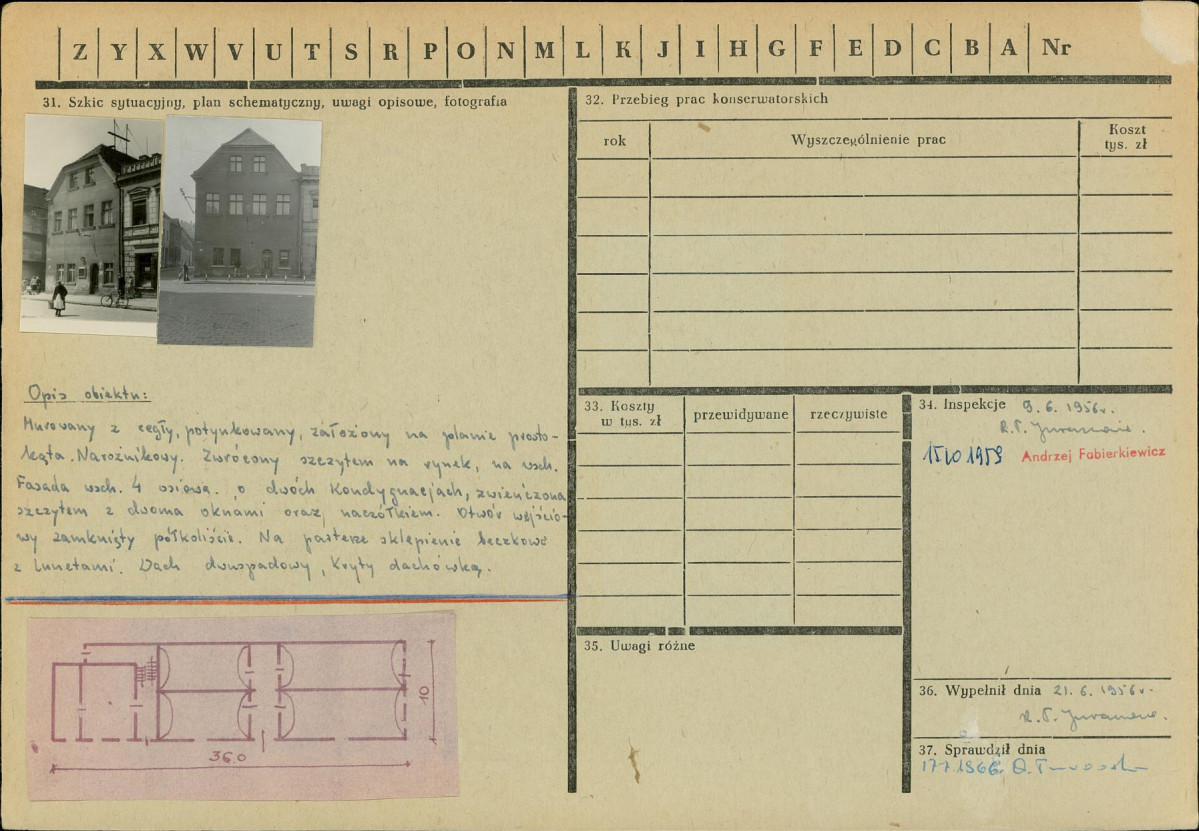 Z Y X W V U T S R P O N M L K J I H G F E D C B A Nr
31. Szkic sytuacyjny, plan schematyczny, uwagi opisowe, fotografia
Opis obiektu:
Murowany z cegły, potynkowany, założony na planie prosto-
kąta. Narożnikowy. Zwrócony szczytem na rynek, na wsch.
Fasada wsch. 4 osiowa, o dwóch kondygnacjach, zwieńczona
szczytem z dwoma oknami oraz naczółkiem. Otwór wejścio-
wy zamknięty półkoliście. Na parterze sklepienie beczkowe
z lunetami. Dach dwuspadowy, kryty dachówką.
10
36.0
32. Przebieg prac konserwatorskich
rok
Wyszczególnienie prac
Koszt
tys. zł
33. Koszty
w tys. zł
przewidywane
rzeczywiste
34. Inspekcje 9.6.1956r.
15 10 1959 Andrzej Fabierkiewicz
35. Uwagi różne
36. Wypełnił dnia 21.6.1956r.
37. Sprawdził dnia